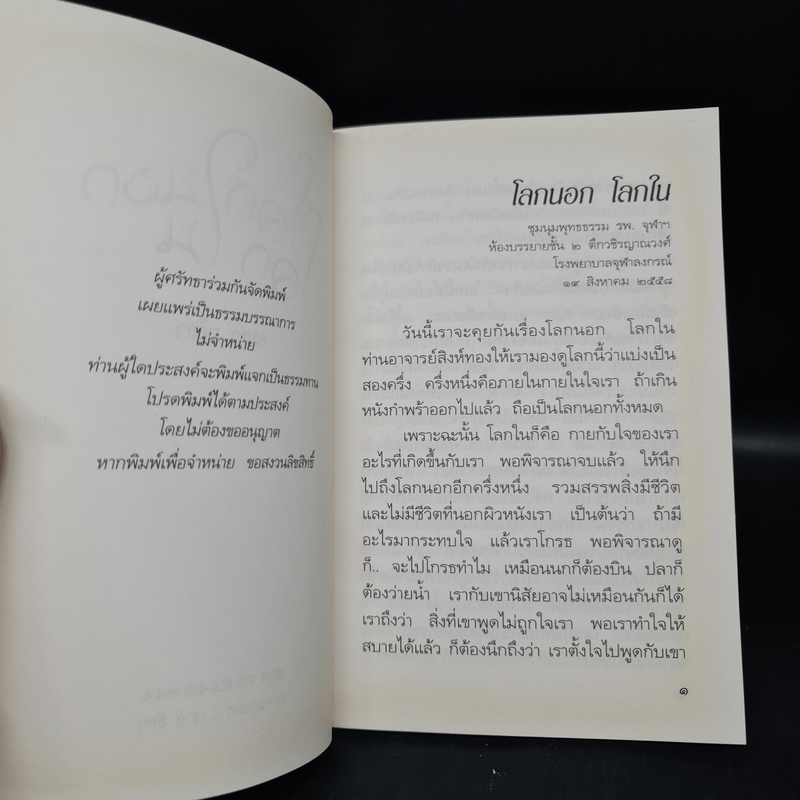 ผู้ศรัทธาร่วมกันจัดพิมพ์
เผยแพร่เป็นธรรมบรรณาการ
ไม่จำหน่าย
ท่านผู้ใดประสงค์จะพิมพ์แจกเป็นธรรมทาน
โปรดพิมพ์ได้ตามประสงค์
โดยไม่ต้องขออนุญาต
หากพิมพ์เพื่อจำหน่าย ขอสงวนลิขสิทธิ์
โลกนอก โลกใน
ชุมนุมพุทธธรรม รพ. จุฬาฯ
ห้องบรรยายชั้น ๒ ตึกวชิรญาณวงศ์
โรงพยาบาลจุฬาลงกรณ์
๑๙ สิงหาคม ๒๕๕๘
วันนี้เราจะคุยกันเรื่องโลกนอก โลกใน
ท่านอาจารย์สิงห์ทองให้เรามองดูโลกนี้ว่าแบ่งเป็น
สองครึ่ง ครึ่งหนึ่งคือภายในกายในใจเรา ถ้าเกิน
หนังกำพร้าออกไปแล้ว ถือเป็นโลกนอกทั้งหมด
เพราะฉะนั้น โลกในก็คือ กายกับใจของเรา
อะไรที่เกิดขึ้นกับเรา พอพิจารณาจบแล้ว ให้นึก
ไปถึงโลกนอกอีกครึ่งหนึ่ง รวมสรรพสิ่งมีชีวิต
และไม่มีชีวิตที่นอกผิวหนังเรา เป็นต้นว่า ถ้ามี
อะไรมากระทบใจ แล้วเราโกรธ พอพิจารณาดู
ก็.. จะไปโกรธทำไม เหมือนนกก็ต้องบิน ปลาก็
ต้องว่ายน้ำ เรากับเขานิสัยอาจไม่เหมือนกันก็ได้
เราถึงว่า สิ่งที่เขาพูดไม่ถูกใจเรา พอเราทำใจให้
สบายได้แล้ว ก็ต้องนึกถึงว่า เราตั้งใจไปพูดกับเขา
๑